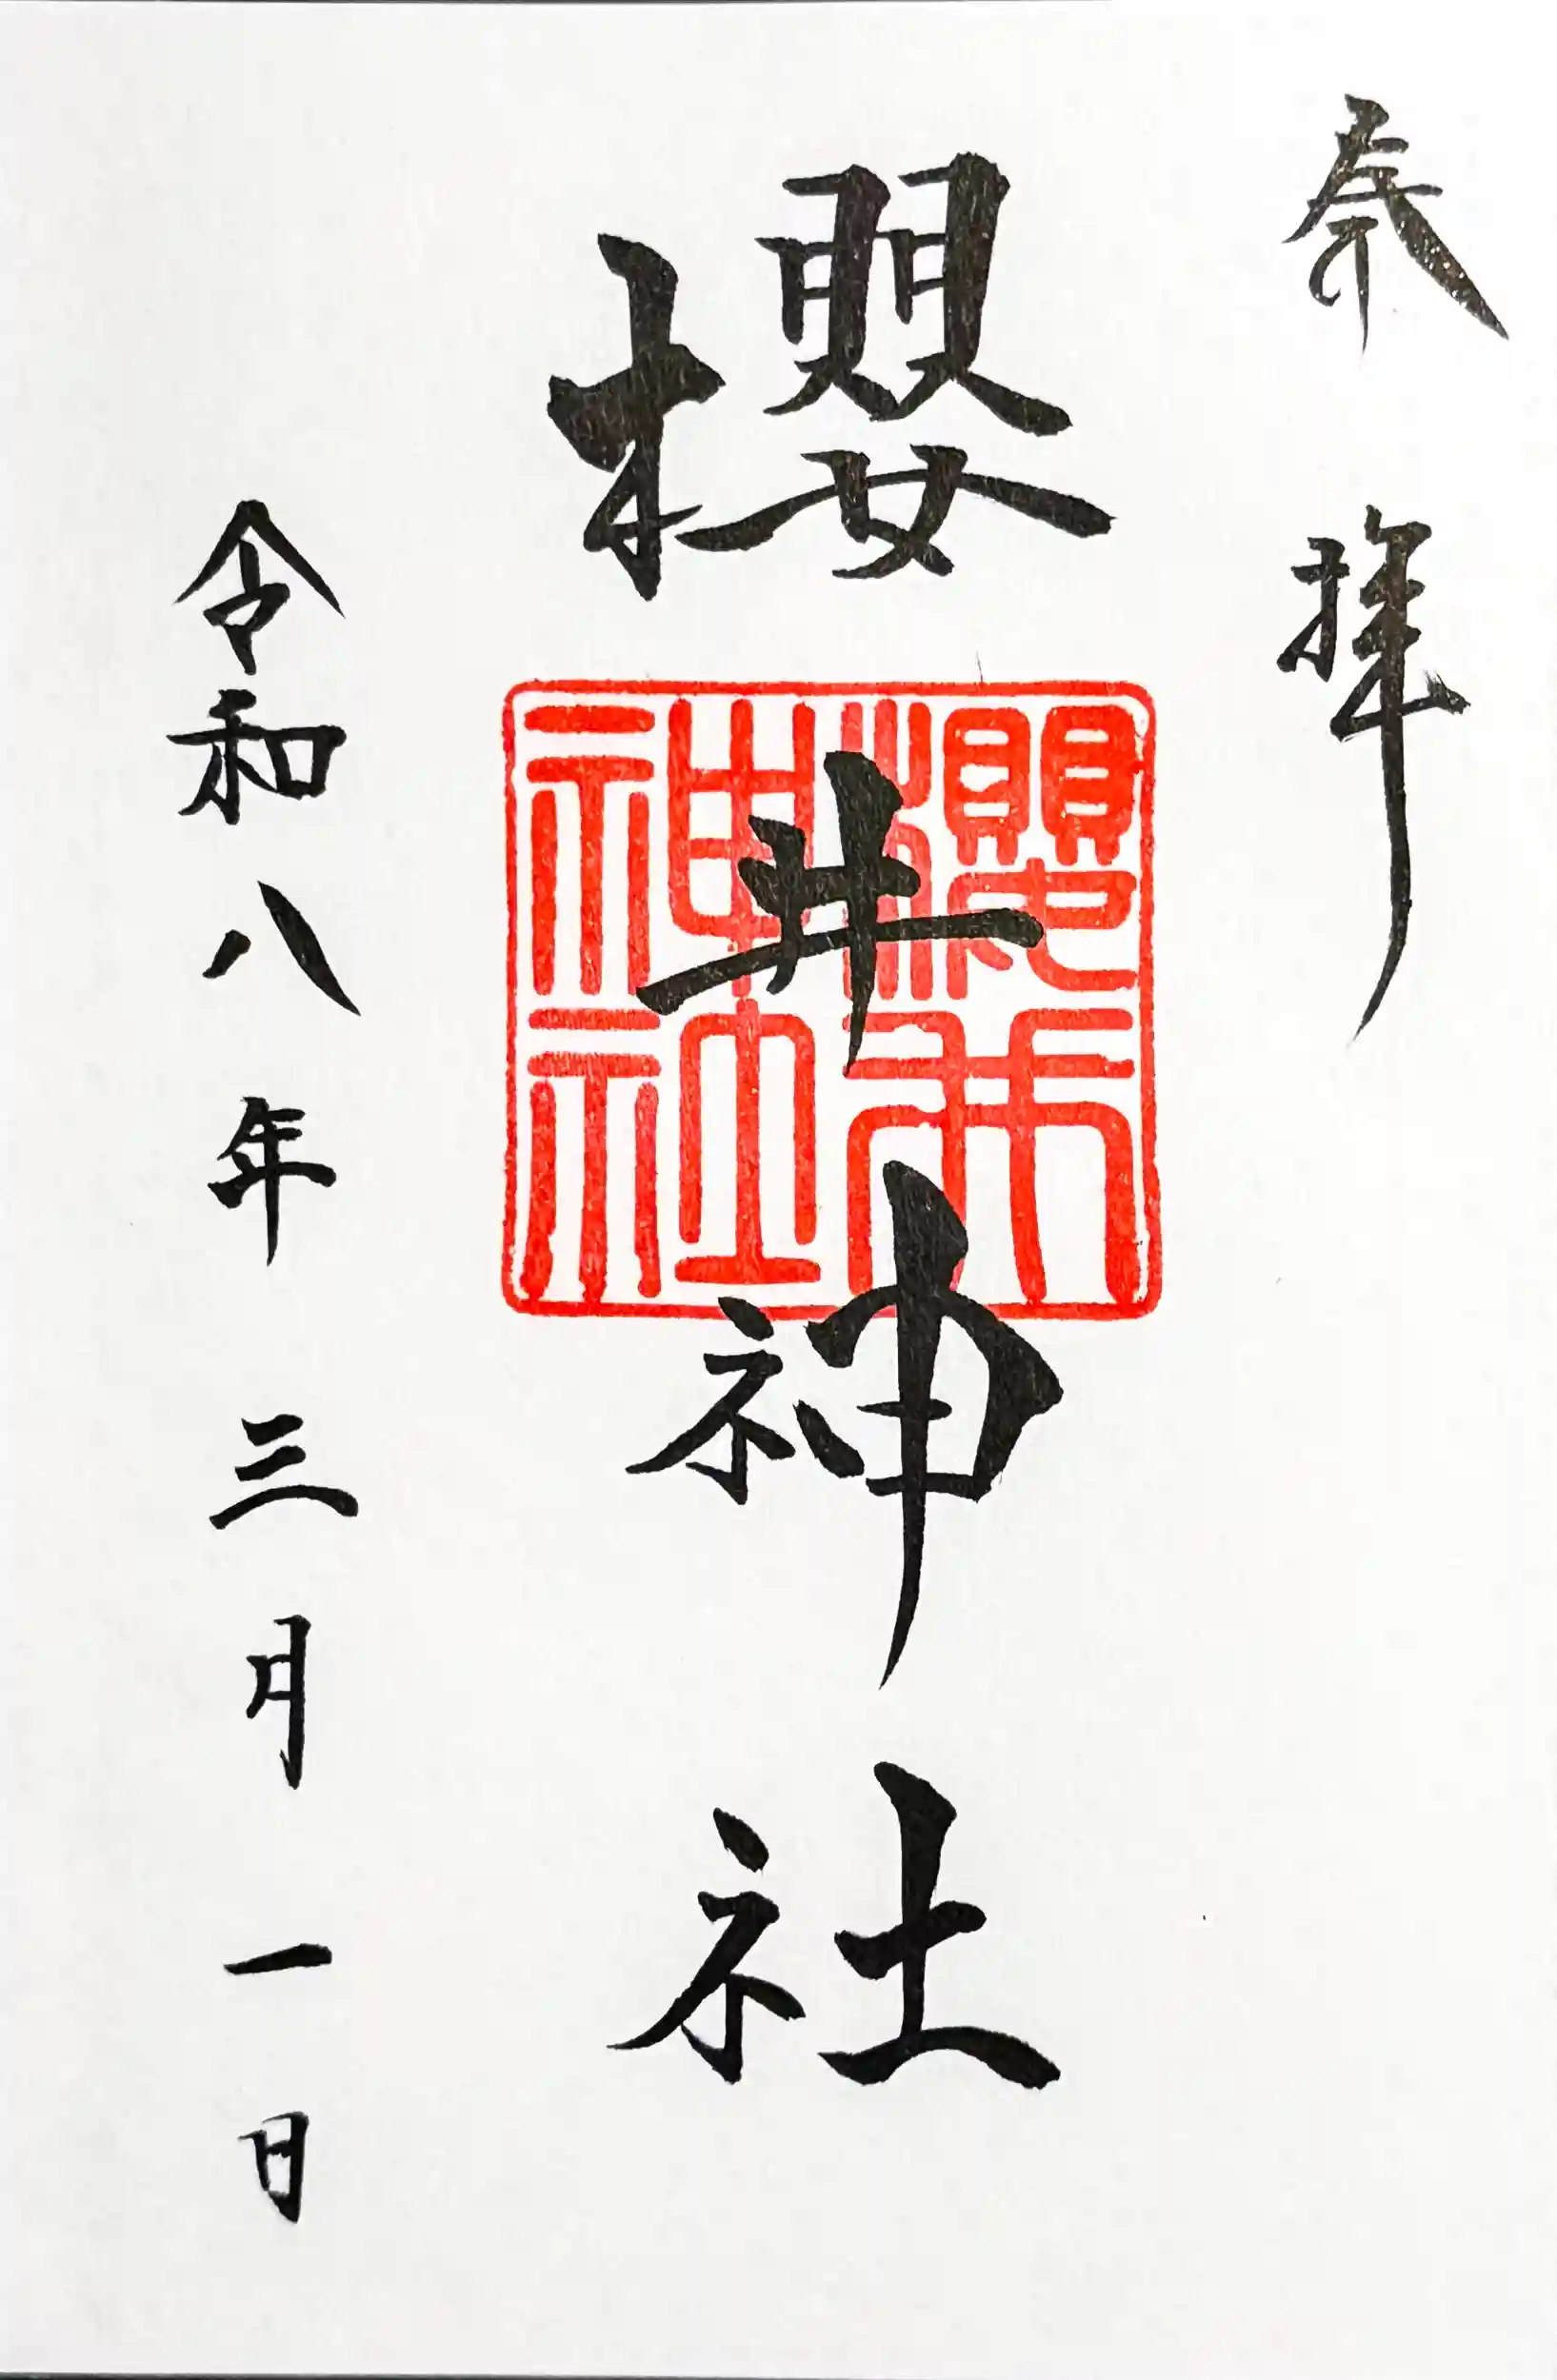 奉拝
櫻井神社
櫻井神社
令和八年三月一日